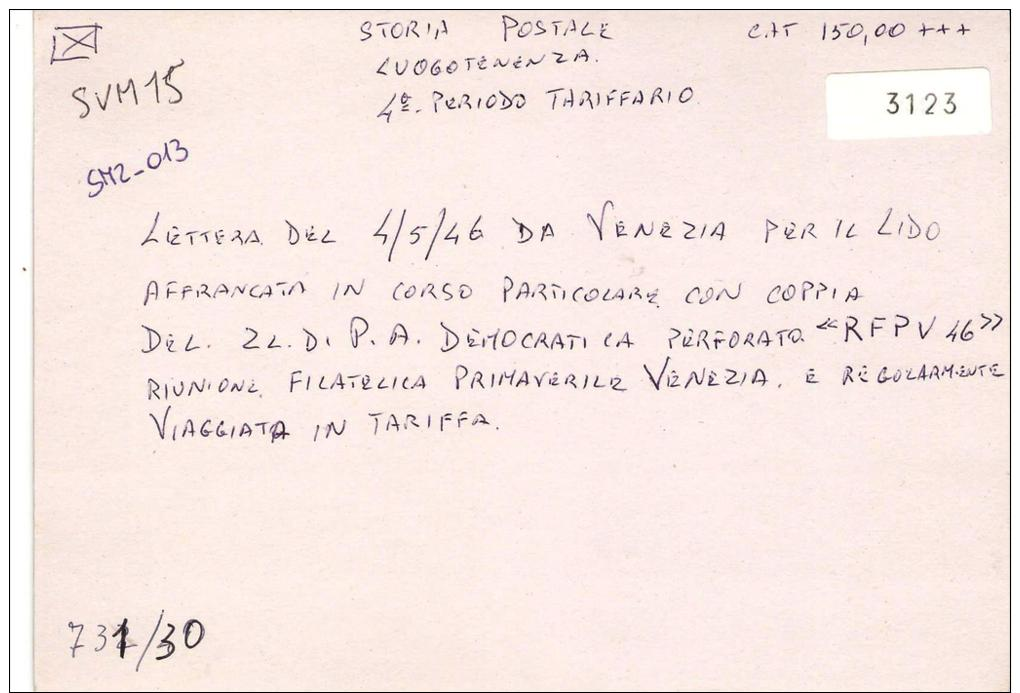 STORIA POSTALE
CAT 150,00 +++
LUOGOTENENZA.
4º. PERIODO TARIFFARIO.
3123
SVM15
SM2_013
LETTERA DEL 4/5/46 DA VENEZIA PER IL LIDO
AFFRANCATA IN CORSO PARTICOLARE CON COPPIA
DEL. 2L. DI P. A. DEMOCRATICA PERFORATA «RFPV 46»
RIUNIONE FILATELICA PRIMAVERILE VENEZIA. E REGOLARMENTE
VIAGGIATA IN TARIFFA.
731/30